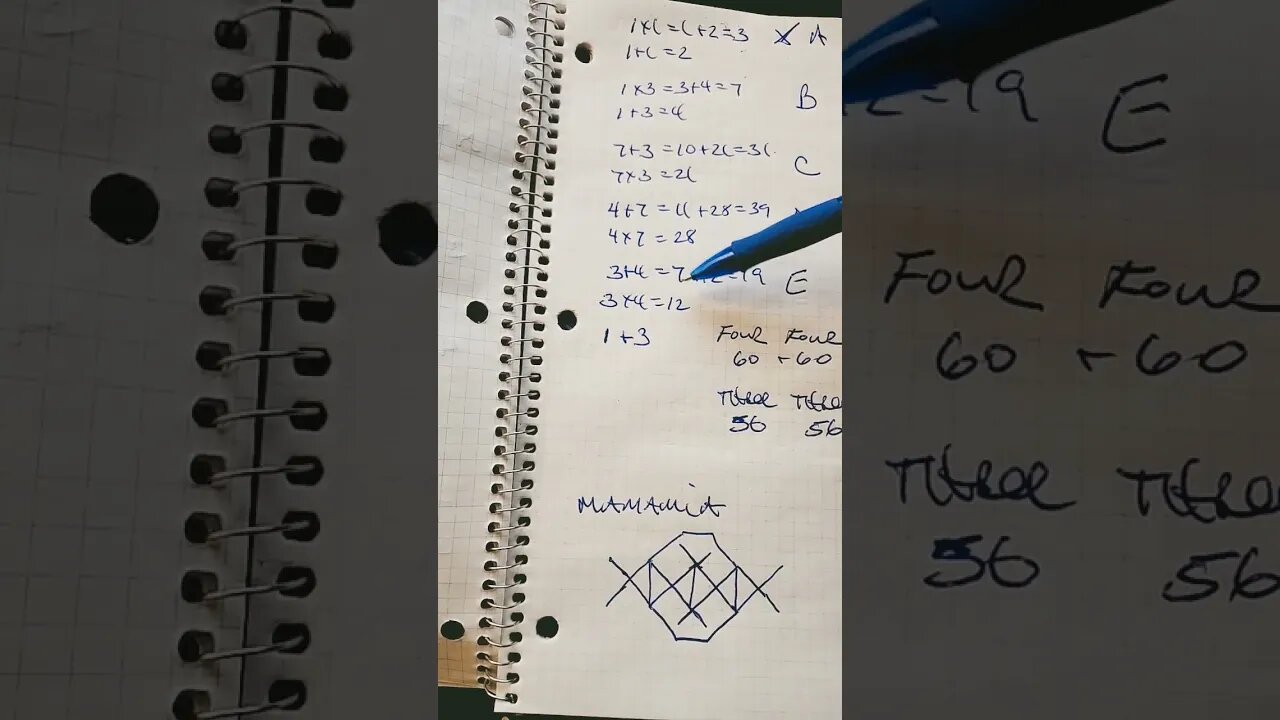 1×1=1+2=3 X A
1+1=2
1×3=3+4=7
B
1+3=4
7+3=10+21=31
C
7×3=21
4+7=11+28=39
4×7=28
3+4=7+12=19 E
3×4=12
1+3
FOUR FOUR
60 + 60
THREE THREE
56 56
MAMAMiA